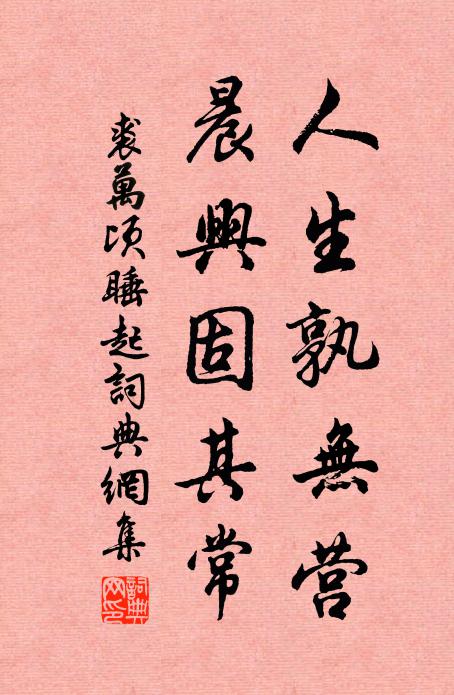 人生孰無営
晨興固其常
裘萬頃睡起詞典網集
詞典網印